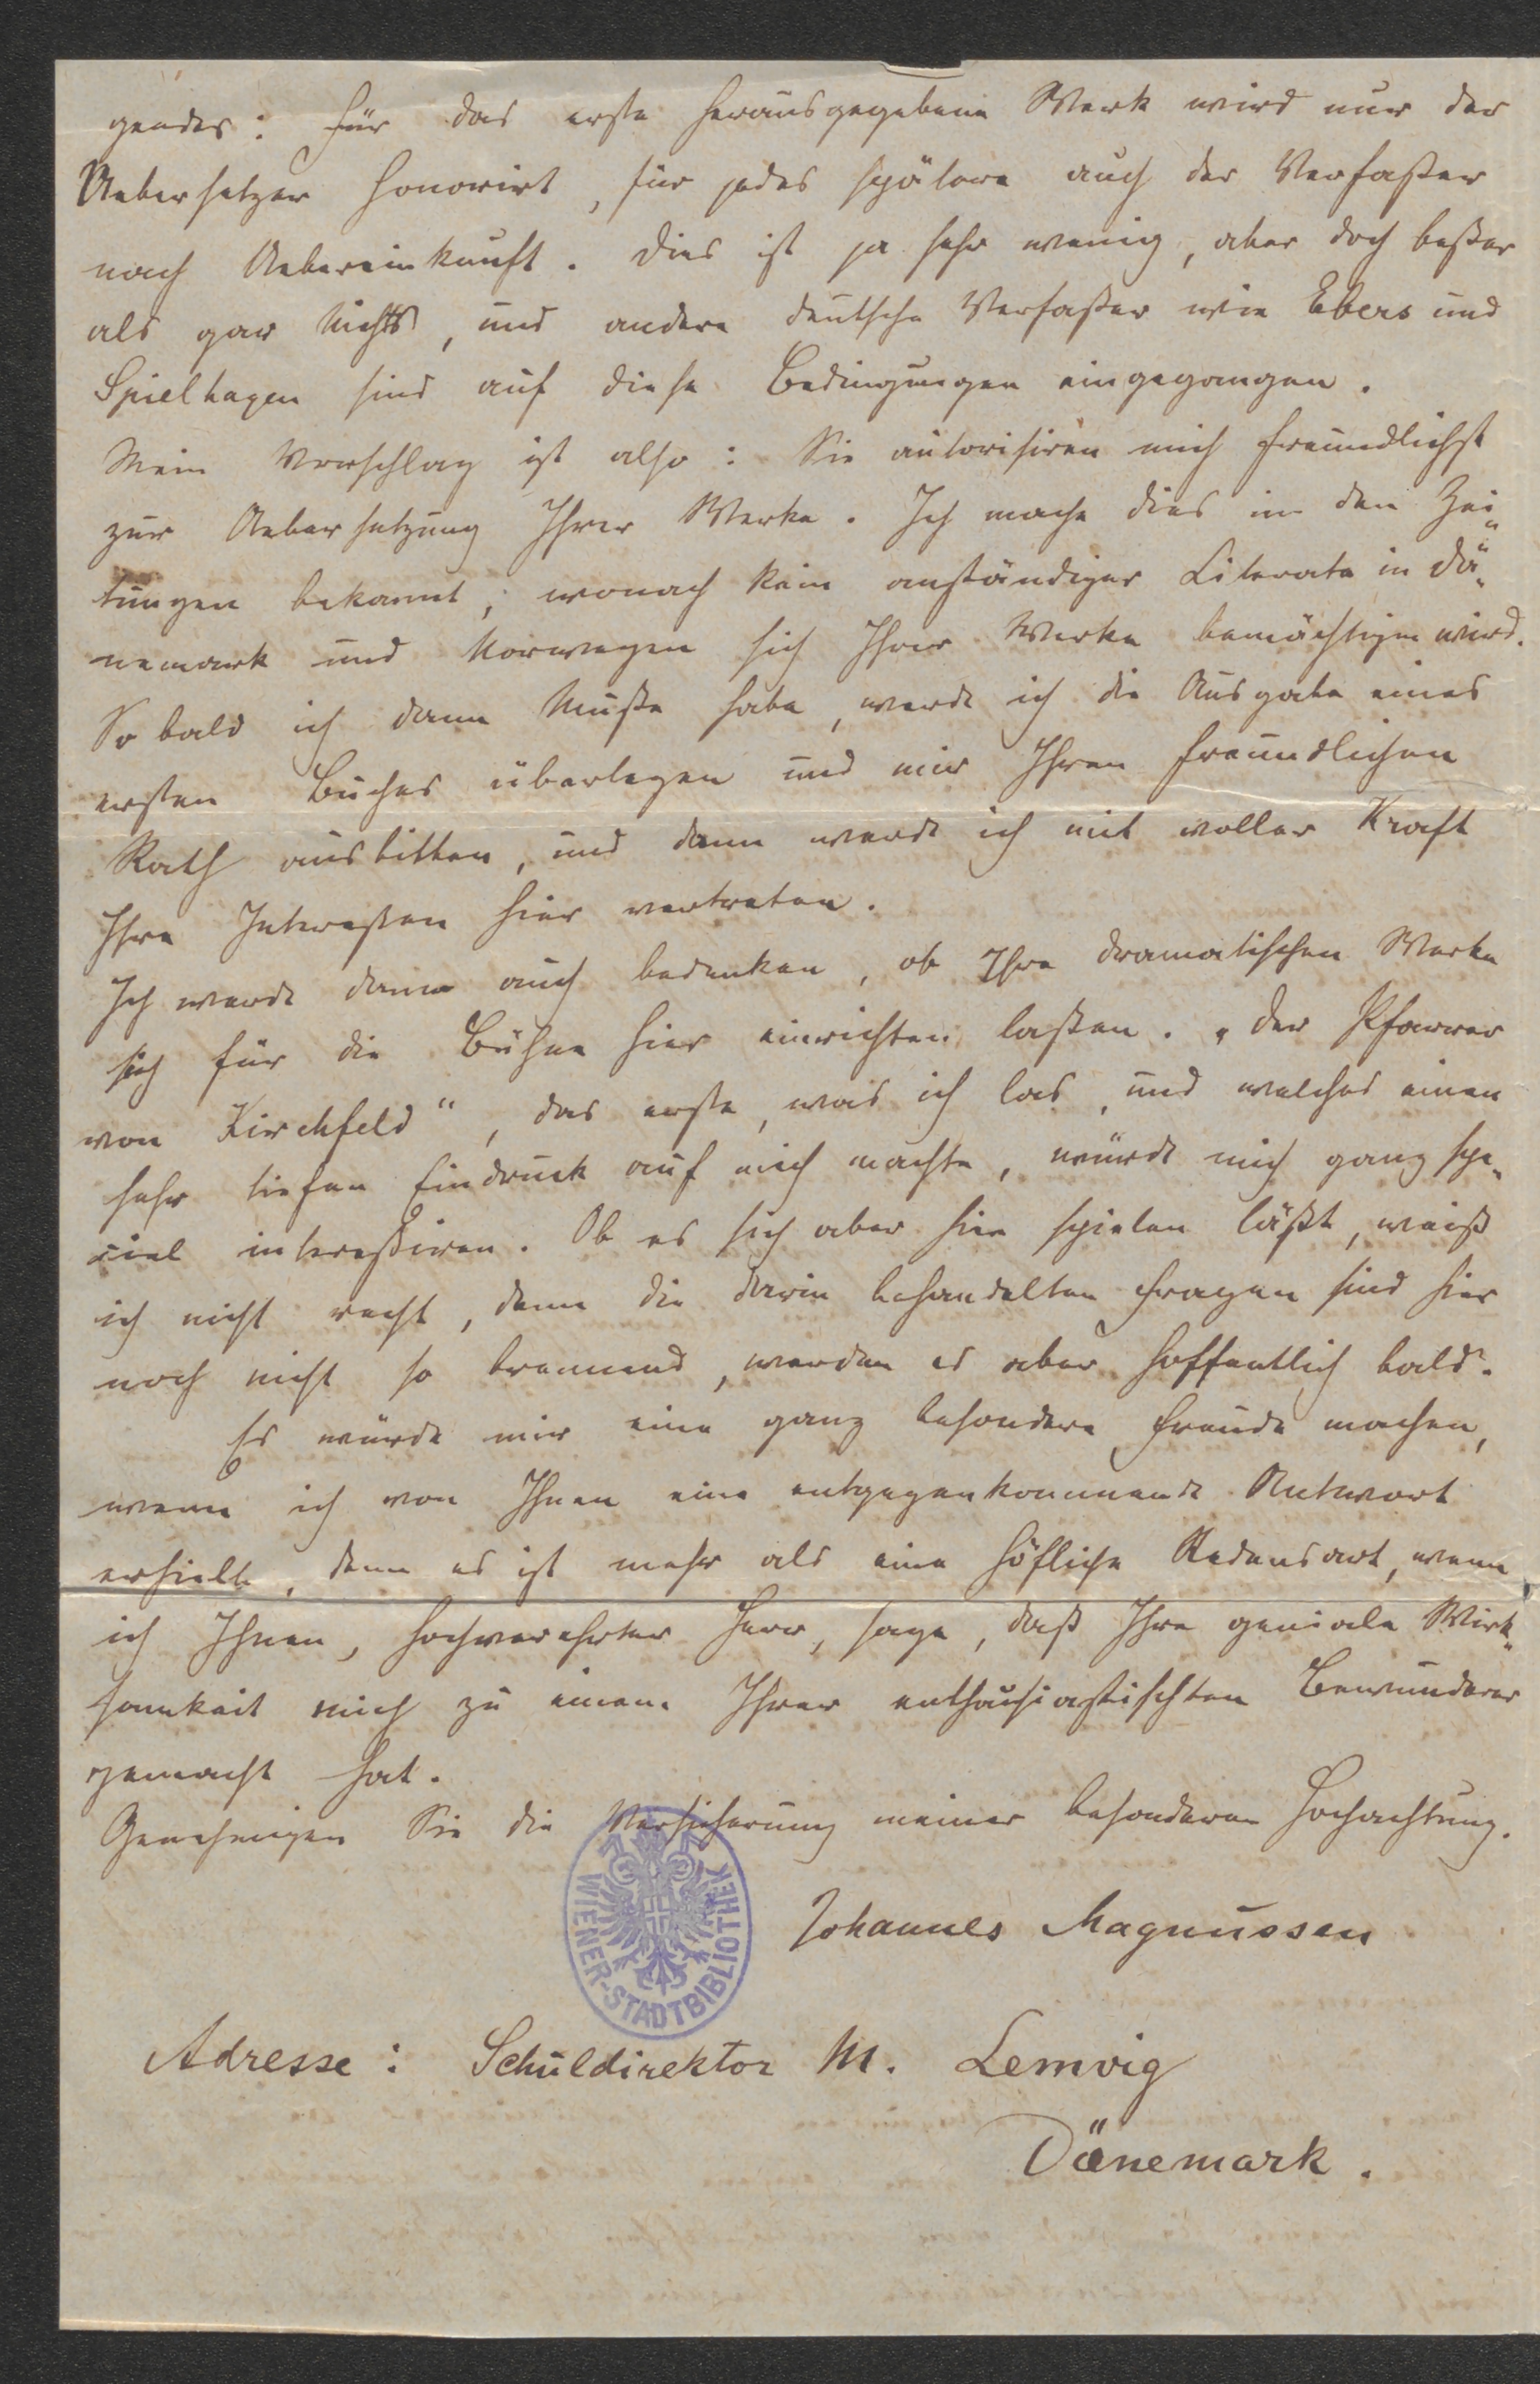 gendes: Für das erste herausgegebene Werk wird nur der
Uebersetzer honorirt, für jedes spätere auch der Verfaßer
nach Uebereinkunft. Dies ist ja sehr wenig, aber doch beßer
als gar Nichts, und andere deutsche Verfaßer wie Ebers und
Spielhagen sind auf diese Bedingungen eingegangen.
Mein Vorschlag ist also: Sie autorisiren mich freundlichst
zur Uebersetzung Ihrer Werke. Ich mache dies in den Zei-
tungen bekannt, wonach kein anständiger Literate in Dä-
nemark und Norwegen sich Ihrer Werke bemächtigen wird.
So bald ich dann Muße habe, werde ich die Ausgabe eines
ersten Buches überlegen und mir Ihren freundlichen
Rath ausbitten, und dann werde ich mit voller Kraft
Ihre Intereßen hier vertreten.
Ich werde dann auch bedenken, ob Ihre dramatischen Werke
sich für die Bühne hier einrichten laßen. „Der Pfarrer
von Kirchfeld“, das erste, was ich las, und welches einen
sehr tiefen Eindruck auf mich machte, würde mich ganz spe-
ciel intereßiren. Ob es sich aber hier spielen läßt, weiß
ich nicht recht, denn die darin behandelten Fragen sind hier
noch nicht so brennend, werden es aber hoffentlich bald.
Es würde mir eine ganz besondere Freude machen,
wenn ich von Ihnen eine entgegenkommende Antwort
erhielte, denn es ist mehr als eine höfliche Redensart, wenn
ich Ihnen, hochverehrter Herr, sage, daß Ihre geniale Wirk-
samkeit mich zu einem Ihrer enthusiastischten Bewunderer
gemacht hat.
Genehmigen Sie die Versicherung meiner besonderen Hochachtung.
Johannes Magnussen
WIENER-STADTBIBLIOTHEK
Adresse: Schuldirektor M. Lemvig
Dänemark.